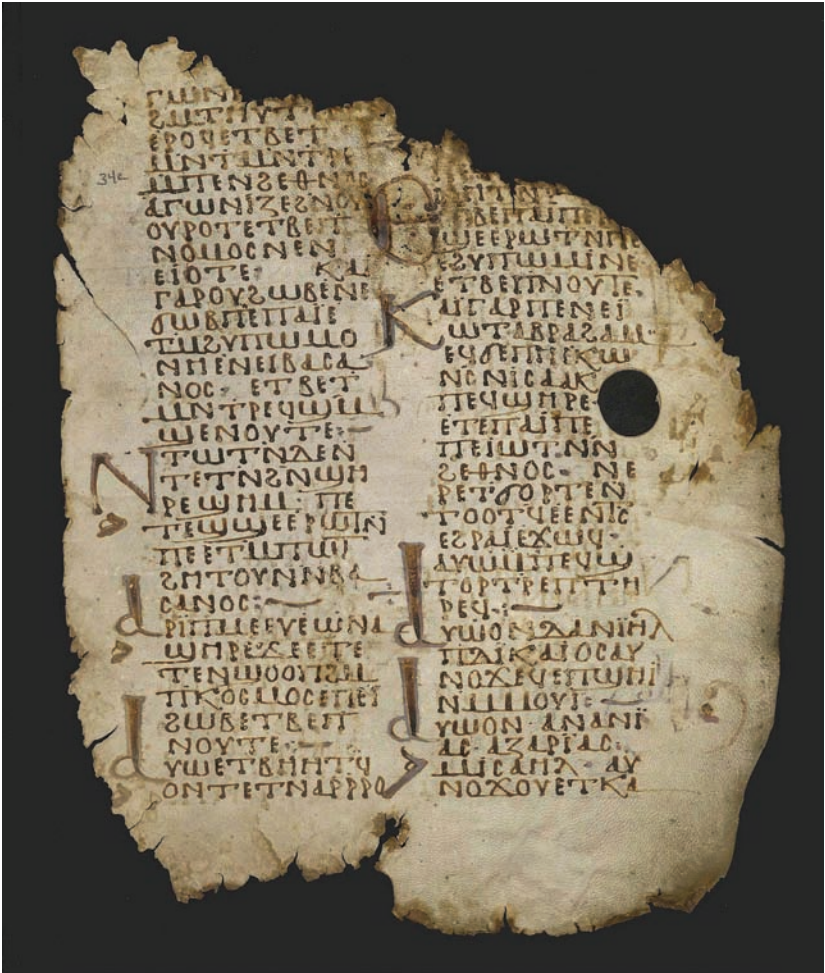 34c
ⲥⲱⲧⲙⲩⲧ
ⲉⲣⲟϥⲉⲧⲃⲉⲧ
ⲙⲛⲧⲙⲛⲧⲣⲉ
ⲙⲡⲉⲛϩⲉⲑⲛⲟⲥ
ⲁⲅⲱⲛⲓⲍⲉϩⲛⲟⲩ
ⲟⲩⲣⲟⲧⲉⲧⲃⲉⲡ
ⲛⲟⲙⲟⲥⲛⲉⲛ
ⲉⲓⲟⲧⲉ· ⲕⲁⲓ
ⲅⲁⲣⲟⲩϩⲱⲃⲉⲛⲉ
ϭⲱⲃⲡⲉⲡⲁⲓⲉ
ⲧⲙϩⲩⲡⲱⲙⲟ
ⲛⲏⲉⲛⲉⲓⲃⲁⲥⲁ
ⲛⲟⲥ· ⲉⲧⲃⲉⲧ
ⲙⲛⲧⲣⲉϥϣⲙ
ϣⲉⲛⲟⲩⲧⲉ·
ⲛⲧⲱⲧⲛⲇⲉⲛ
ⲧⲉⲧⲛϩⲛϣⲏ
ⲣⲉϣⲏⲙ· ⲡⲉ
ⲧⲉϣϣⲉⲉⲣⲱⲧⲛ
ⲡⲉⲉⲧⲙⲡϣⲱ
ϩⲏⲧⲟⲩⲛⲛⲃⲁ
ⲥⲁⲛⲟⲥ·
ⲁⲣⲓⲡⲙⲉⲉⲩⲉⲱⲛⲁ
ϣⲏⲣⲉϫⲉⲉⲧⲉ
ⲧⲉⲛϣⲟⲟⲡϩⲙ
ⲡⲕⲟⲥⲙⲟⲥⲉⲡⲉⲓ
ϩⲱⲃⲉⲧⲃⲉⲡ
ⲛⲟⲩⲧⲉ·
ⲁⲩⲱⲉⲧⲃⲏⲏⲧϥ
ⲟⲛⲧⲉⲧⲛⲁⲣⲣⲣⲟ
ϣⲉⲉⲣⲱⲧⲛⲡⲉ
ⲉϩⲩⲡⲱⲙⲓⲛⲉ
ⲉⲧⲃⲉⲡⲛⲟⲩⲧⲉ·
ⲕⲁⲓⲅⲁⲣⲡⲉⲛⲉⲓ
ⲱⲧⲁⲃⲣⲁϩⲁⲙ·
ⲉϥϭⲉⲡⲏⲉⲕⲱ
ⲛⲥⲛⲓⲥⲁⲁⲕ
ⲡⲉϥϣⲏⲣⲉ·
ⲉⲧⲉⲡⲁⲓⲡⲉ
ⲡⲉⲓⲱⲧⲛⲛ
ϩⲉⲑⲛⲟⲥ· ⲛⲉ
ⲣⲉⲧϭⲟⲣⲧⲉⲛ
ⲧⲟⲟⲧϥⲉⲉⲛⲓⲥ
ⲉϩⲣⲁⲓⲉϫⲱϥ·
ⲁⲩⲱⲙⲡⲉϥϣ
ⲧⲟⲣⲧⲣⲉⲡⲧⲏ
ⲣⲉϥ·
ⲁⲩⲱⲟⲛⲇⲁⲛⲓⲏⲗ
ⲡⲇⲓⲕⲁⲓⲟⲥⲁⲩ
ⲛⲟϫⲉϥⲉⲡϣⲏⲓ
ⲛⲙⲙⲟⲩⲓ·
ⲁⲩⲱⲟⲛ ⲁⲛⲁⲛⲓ
ⲁⲥ ⲁⲍⲁⲣⲓⲁⲥ·
ⲙⲓⲥⲁⲏⲗ· ⲁⲩ
ⲛⲟϫⲟⲩⲉⲧⲕⲁ